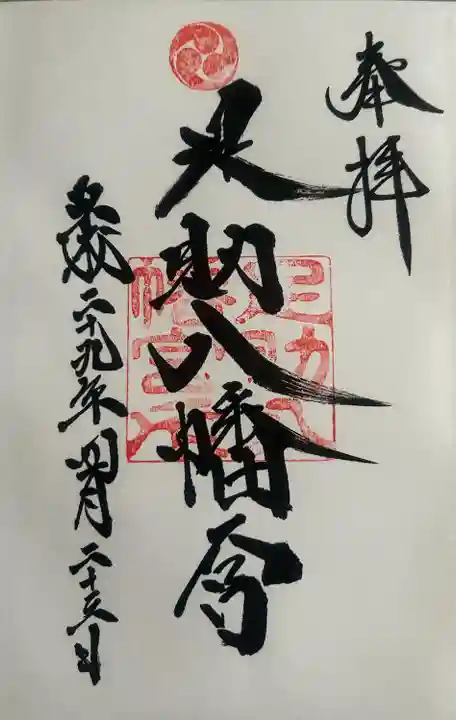 奉拝
足助八幡宮
平成二十九年四月二十三日